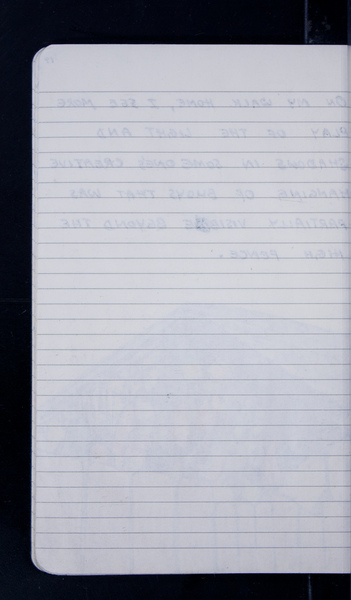 ON MY WALK HOME, I SEE MORE
PLAY OF THE LIGHT AND
SHADOWS IN SOMEONE'S CREATIVE
HANGING OF BUOYS THAT WAS
PARTIALLY VISIBLE BEYOND THE
HIGH FENCE.